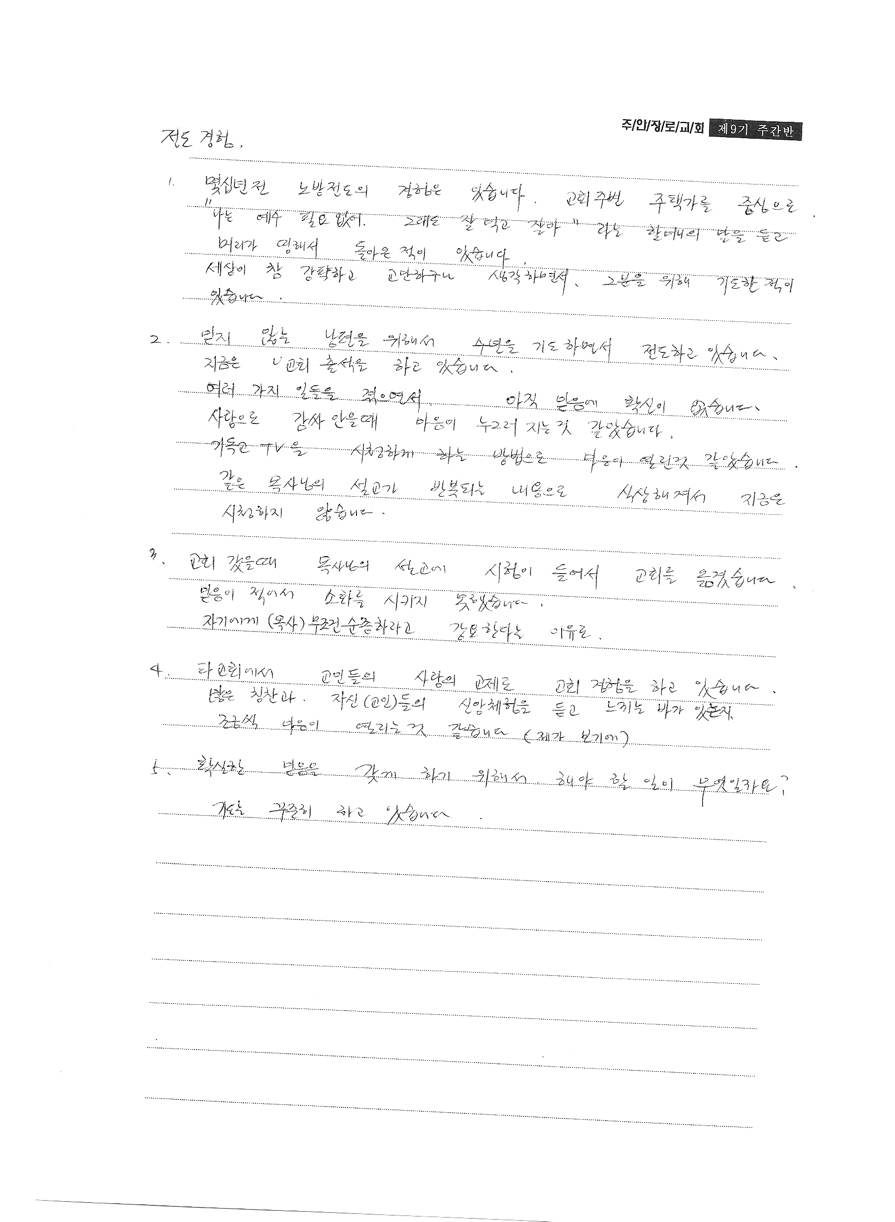 주/안/장/로/교/회 제9기 주간반
전도 경험.
1. 몇십년전 노방전도의 경험은 있습니다. 교회주변 주택가를 중심으로
"나는 예수 필요없어. 그래도 잘 먹고 잘살아" 라는 할머니의 말을 듣고
머리가 멍해서 돌아온 적이 있습니다.
세상이 참 강퍅하고 고단하구나 생각하면서, 그분을 위해 기도한 적이
있습니다.
2. 믿지 않는 남편을 위해서 수년을 기도하면서 전도하고 있습니다.
지금은 교회 출석을 하고 있습니다.
여러 가지 일들을 겪으면서, 아직 믿음에 확신이 없습니다.
사랑으로 감싸 안을때 마음이 누그러지는것 같았습니다.
기독교 TV을 시청하게 하는 방법으로 마음이 열린것 같았습니다.
같은 목사님의 설교가 반복되는 내용으로 식상해져서 지금은
시청하지 않습니다.
3. 교회 갔을때 목사님의 설교에 시험이 들어서 교회를 옮겼습니다.
믿음이 적어서 소화를 시키지 못했습니다.
자기에게 (목사) 무조건순종하라고 강요한다는 이유로.
4. 타교회에서 교인들의 사랑의 교제로 교회 경험을 하고 있습니다.
많은 칭찬과. 자신(교인)들의 신앙체험을 듣고 느끼는 바가 있는지
조금씩 마음이 열리는것 같습니다 (제가 보기에)
5. 확실한 믿음을 갖게 하기 위해서 해야 할 일이 무엇일까요?
기도는 꾸준히 하고 있습니다.